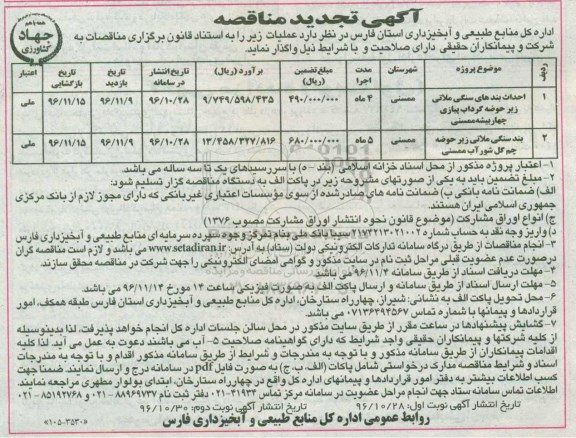 آگهی تجدید مناقصه
جهاد
کشاورزی
اداره کل منابع طبیعی و آبخیزداری استان فارس در نظر دارد عملیات زیر را به استناد قانون برگزاری مناقصات به
شرکت و پیمانکاران حقیقی دارای صلاحیت و با شرایط ذیل واگذار نماید.
ردیف موضوع پروژه شهرستان مدت اجرا مبلغ تضمین (ریال) برآورد (ریال) تاریخ انتشار در سامانه تاریخ بازدید تاریخ بازگشایی اعتبار
۱ احداث بند های سنگی ملاتی زیر حوضه گرداب پیازی چهاربیشه ممسنی ممسنی ۴ ماه ۴۹۰/۰۰۰/۰۰۰ ۹/۷۴۹/۵۹۸/۴۳۵ ۹۶/۱۰/۲۸ ۹۶/۱۱/۹ ۹۶/۱۱/۱۵ ملی
۲ بند سنگی ملاتی زیر حوضه چم گل شور آب ممسنی ممسنی ۵ ماه ۶۸۰/۰۰۰/۰۰۰ ۱۳/۴۵۸/۳۲۷/۸۱۶ ۹۶/۱۰/۲۸ ۹۶/۱۱/۹ ۹۶/۱۱/۱۵ ملی
۱- اعتبار پروژه مذکور از محل اسناد خزانه اسلامی (بند - ه) با سررسیدهای یک تا سه ساله می باشد.
۲- مبلغ تضمین باید به یکی از صورتهای مشروحه زیر در پاکت الف به دستگاه مناقصه گزار تسلیم شود:
الف) ضمانت نامه بانکی ب) ضمانت نامه های صادرشده از سوی مؤسسات اعتباری غیربانکی که دارای مجوز لازم از بانک مرکزی
جمهوری اسلامی ایران هستند.
ج) انواع اوراق مشارکت (موضوع قانون نحوه انتشار اوراق مشارکت مصوب ۱۳۷۶)
د) واریز وجه نقد به حساب شماره ۲۱۷۴۲۱۳۰۲۱۰۰۲ سیبا بانک ملی بنام تمرکز وجوه سپرده سرمایه ای منابع طبیعی و آبخیزداری فارس
۳- انجام مناقصات از طریق درگاه سامانه تدارکات الکترونیکی دولت (ستاد) به آدرس: www.setadiran.ir می باشد و لازم است مناقصه گران
درصورت عدم عضویت قبلی مراحل ثبت نام در سایت مذکور و گواهی امضای الکترونیکی را جهت شرکت در مناقصه محقق سازند.
۴- مهلت دریافت اسناد از طریق سامانه ۹۶/۱۱/۴ می باشد.
۵- مهلت ارسال اسناد از طریق سامانه و ارسال پاکت الف به صورت فیزیکی ساعت ۱۴ مورخ ۹۶/۱۱/۱۴ می باشد.
۶- محل تحویل پاکت الف به نشانی: شیراز، چهارراه ستارخان، اداره کل منابع طبیعی و آبخیزداری استان فارس طبقه همکف، امور
قراردادها و پیمانها با شماره تماس ۰۷۱۳۶۴۹۴۵۶۷ می باشد.
۷- گشایش پیشنهادها در ساعت مقرر از طریق سایت مذکور در محل سالن جلسات اداره کل انجام خواهد پذیرفت، لذا بدینوسیله
از کلیه شرکتها و پیمانکاران حقیقی واجد شرایط که دارای گواهینامه صلاحیت ۵- آب می باشند دعوت به عمل می آید. لذا کلیه
اقدامات پیمانکاران از طریق سامانه مذکور و با توجه به مندرجات و شرایط از طریق سامانه مذکور اقدام و با توجه به مندرجات
اسناد و شرایط مناقصه مدارک درخواستی شامل پاکات (الف، ب، ج) به صورت فایل pdf در سامانه درج و ارسال نمایند. ضمنا جهت
کسب اطلاعات بیشتر به دفتر امور قراردادها و پیمانهای اداره کل واقع در چهارراه ستارخان، ابتدای بولوار مطهری مراجعه نمایند.
اطلاعات تماس سامانه ستاد جهت انجام مراحل عضویت در سامانه مرکز تماس ۴۱۹۳۴-۰۲۱ دفتر ثبت نام ۸۸۹۶۹۷۳۷-۰۲۱ و ۸۵۱۹۲۷۶۸-۰۲۱
تاریخ انتشار آگهی نوبت اول: ۹۶/۱۰/۲۸ تاریخ انتشار آگهی نوبت دوم: ۹۶/۱۰/۳۰
روابط عمومی اداره کل منابع طبیعی و آبخیزداری فارس
۱۰۵۰۳۵۳۰